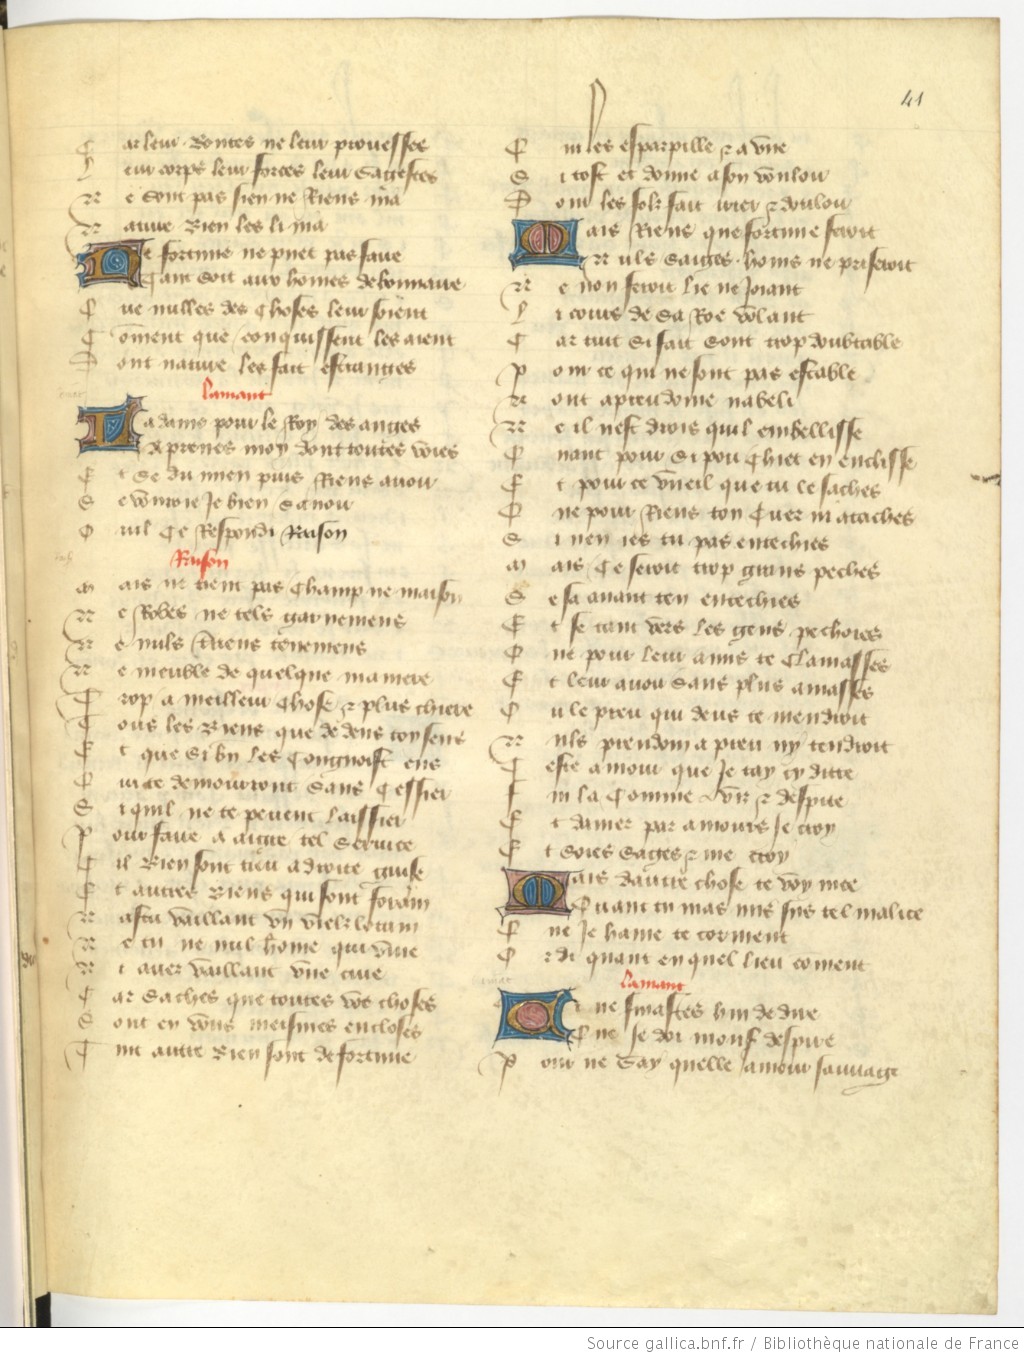 41
Car leur bontes ne leur prouesses
Leur corps leur forces leur sagesses
Ne sont pas sien ne riens nia
Nature bien les li nia
De fortune ne puet pas faire
Tant soit aux homes debonnaire
Que nulles des choses leur soient
Coment que conquissent les aient
Dont nature les fait estranges
Lamant
Ha dame pour le Roy des anges
Aprenes moy dont toutes voies
Et se du mien puis riens avoir
Se vouroie je bien savoir
Ouil ce respondi Raison
Raison
Mais ne tient pas champ ne maison
Ne robes ne tels garnemens
Ne nuls tenemens
Ne meuble de quelque maniere
Trop a meilleur chose et plus chiere
Tous les biens que dedens toy sens
Et que si bn les congnoist ens
Qui te demourront sans cessier
Si quil ne te pevent laissier
Pour faire a autre tel service
Cil bien sont tieu a droite guise
Et autres biens qui sont forain
Nas tu vaillant un viels lorain
Ne tu ne nul home qui vive
Ni aves vaillant une cive
Car saches que toutes vos choses
Sont en vous meismes encloses
Tuit autre bien sont de fortune
Qui les esparpille et aune
Si tost et donne a son voulour
Dont les folz fait irier et doulour
Mais riens que fortune feroit
Nuls sages homs ne priseroit
Ne non feroit lie ne joiant
Li tours de sa roe volant
Car tuit si fait sont trop doubtable
Pour ce qui ne sont pas estable
Ne il nest drois quil embellisse
Quant pour si pou chiet en enclisse
Et pour ce vueil que tu le saches
Que pour riens ton cuer ni ataches
Si nen ies tu pas entechies
Mais ce seroit trop grans pechies
Se sa avant ten entechies
Et se tant vers les gens pechoies
Que pour leur amis te clamasses
Et leur avoir sans plus amasses
Ou le preu qui deus te mendroit
Nuls preudom a preu ny tendroit
Ceste amour que je tay cy ditte
Fui la comme vil et despite
Et damer par amours je croy
Et soies sages et me croy
Mais dautre chose te voy nice
Quant tu mas mis sus tel malice
Que je haine te corment
Or di quant en quel lieu coment
Lamant
Ci ne finastes hui de dire
Que je doi mon s despire
Pour ne say quelle amour sauvage
Source gallica.bnf.fr / Bibliothèque nationale de France